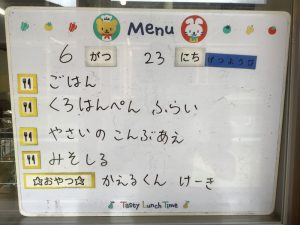 Menu
6 がつ 23 にち げつようび
ごはん
くろはんぺん ふらい
やさいの こんぶあえ
みそしる
☆おやつ☆ かえるくん けーき
Tasty Lunch Time